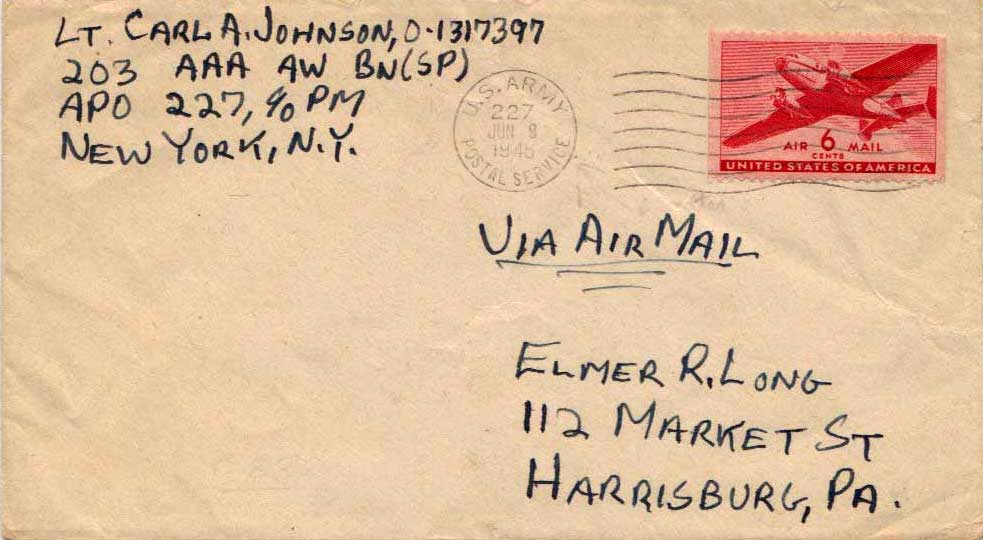 LT. CARL A. JOHNSON, O-1317397
203 AAA AW BN(SP)
APO 227, c/o PM
NEW YORK, N.Y.
U.S. ARMY
227
JUN 8
1945
POSTAL SERVICE
AIR 6 MAIL
CENTS
UNITED STATES OF AMERICA
VIA AIR MAIL
ELMER R. LONG
112 MARKET ST
HARRISBURG, PA.